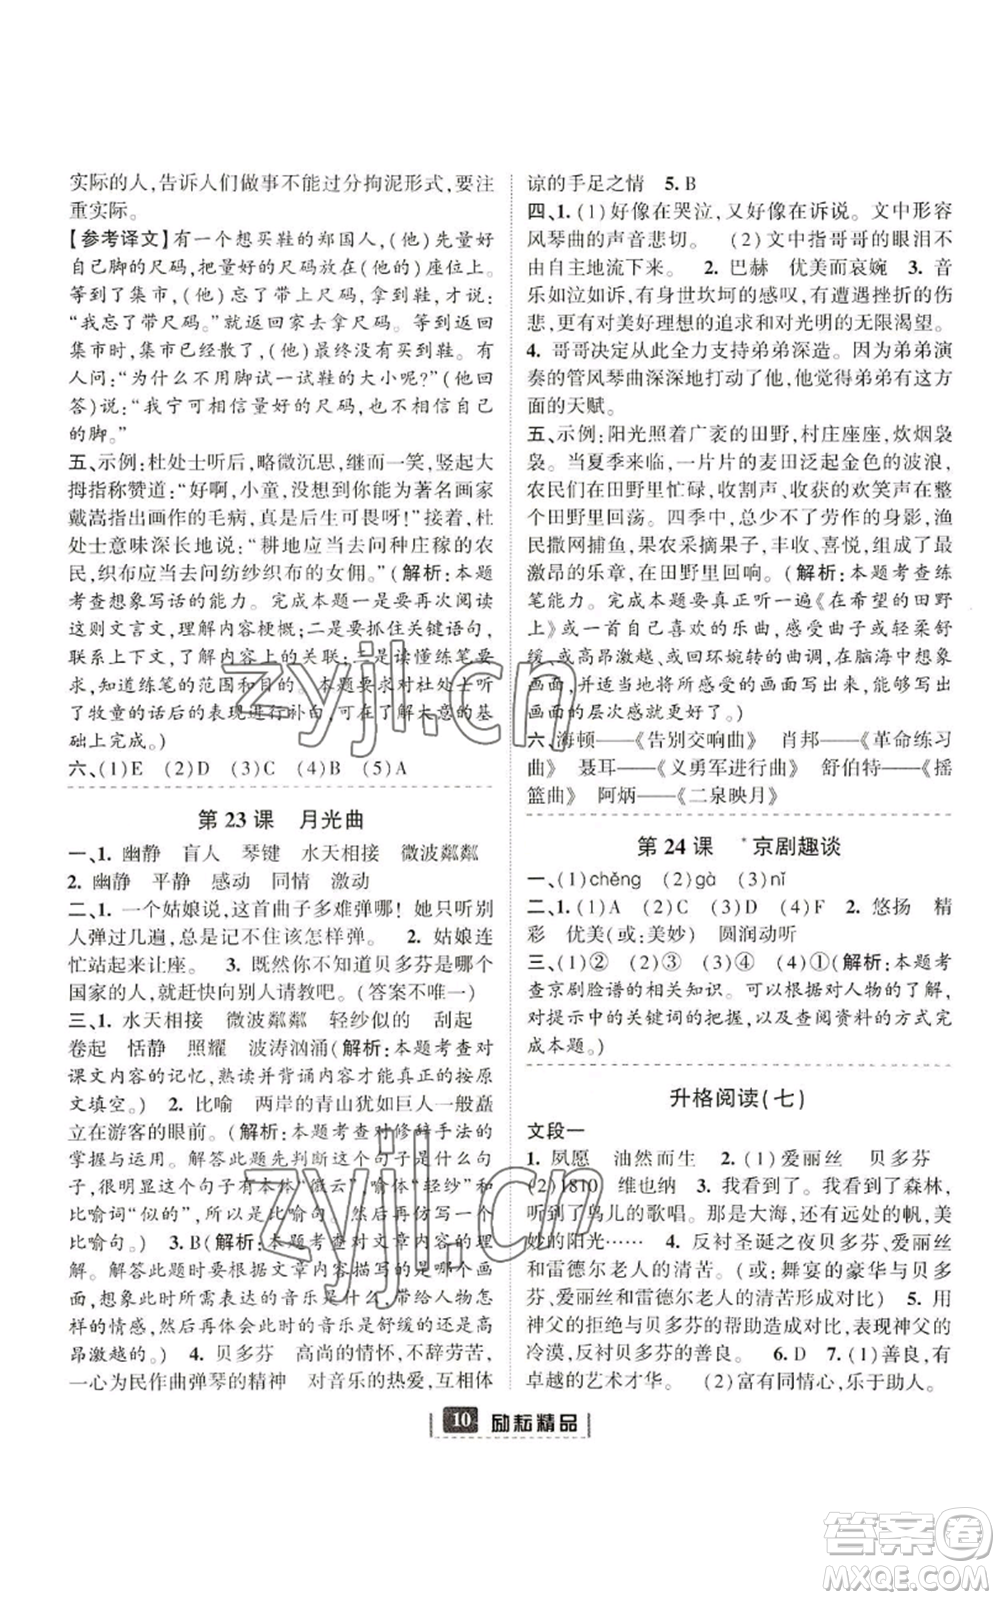 实际的人,告诉人们做事不能过分拘泥形式,要注
重实际。
【参考译文】有一个想买鞋的郑国人,(他)先量好
自己脚的尺码,把量好的尺码放在(他的)座位上。
等到了集市,(他)忘了带上尺码,拿到鞋,才说:
“我忘了带尺码。”就返回家去拿尺码。等到返回
集市时,集市已经散了,(他)最终没有买到鞋。有
人问:“为什么不用脚试一试鞋的大小呢?”(他回
答)说:“我宁可相信量好的尺码,也不相信自己
的脚。”
五、示例:杜处士听后,略微沉思,继而一笑,竖起大
拇指称赞道:“好啊,小童,你能把这幅著名画家
戴嵩指出画作的毛病,真是后生可畏呀!”接着,杜
处士意味深长地说:“耕地应当去问种庄稼的农
民,织布应当去问纺纱织布的女佣。”(解析:本题
考查想象写话的能力。完成本题一是要再次阅读
这则文言文,了解内容梗概;二是要抓住关键语句,
联系上下文,了解内容上的关联;三是读懂练笔要
求,知道练笔的范围和目的。本题要求对杜处士听
了牧童的话后的表现进行补白,可在了解大意的基
础上完成。)
六、(1)E (2)D (3)C (4)B (5)A
第 23 课 月光曲
一、1. 幽静 盲人 琴键 水天相接 微波粼粼
2. 幽静 平静 感动 同情 激动
二、1. 一个姑娘说,这首曲子多难弹哪!她只听别
人弹过几遍,总是记不住该怎样弹。 2. 姑娘连
忙站起来让座。 3. 既然你知道贝多芬是哪个
国家的人,就赶快向别人请教吧。(答案不唯一)
三、1. 水天相接 微波粼粼 轻纱似的 刮起
卷起 恬静 照耀 波涛汹涌(解析:本题考查对
课文内容的记忆,熟读并背诵课文内容,再按原
文填空。) 2. 比喻 两岸的青山犹如巨人一般矗
立在游客的眼前。(解析:本题考查对修辞手法的
掌握与运用。解答此题先判断这个句子是什么句
子,很明显这个句子有本体“微云”,喻体“轻纱”和
比喻词“似的”,所以是比喻句。然后再仿写一个
比喻句即可) 3. B(解析:本题考查对课文内容的
掌握。解答此题时要根据文章内容联想文中的画
面,想象此时所需表达的音乐是带给人们怎样的
情感,然后再体会此时的音乐是舒缓的还是高
昂激越的。) 4. 贝多芬 高尚的情怀,不辞劳苦,
一心为民作曲弹琴的精神 对音乐的热爱,互相体
谅的手足之情 5. B
四、1. (1)好像在哭泣,又好像在诉说。文中形容
风琴曲的声音悲切。 (2)文中指哥哥的眼泪不
由自主地流下来。 2. 巴赫 优美而哀婉 3. 音
乐如泣如诉,有对身世坎坷的感叹,有遭遇挫折的伤
悲,更有对美好理想的追求和对光明的无限渴望。
4. 哥哥决定从此全力支持弟弟深造。因为弟弟演
奏的管风琴曲深深地打动了他,他觉得弟弟有这方
面的天赋。
五、示例:阳光照着广袤的田野,村庄座座,炊烟袅
袅。当夏季来临,一片片的麦田泛起金色的波浪,
农民们在田野里忙碌,收割声、收获的欢笑声在田
野里回荡。四季中,总少不了劳作的身影,渔
民撒网捕鱼,果农采摘果子,丰收、喜悦,组成了最
激昂的乐章,在田野里回响。(解析:本题考查练
笔能力。完成本题要真正听一遍《在希望的田野
上》或一首自己喜欢的乐曲,感受曲子或轻柔舒
缓,或高昂激越,或回环婉转的曲调,在脑海中想象
画面,并试着将所感受的画面写出来,能写出
画面的层次感就更好了。)
六、海顿——《告别交响曲》 肖邦——《革命练习
曲》 聂耳——《义勇军进行曲》 舒伯特——《摇
篮曲》 阿炳——《二泉映月》
第 24 课 *京剧趣谈
一、(1)chěng (2)gà (3)nǐ
二、1. (1)A (2)C (3)D (4)F 2. 悠扬 精
彩 优美(或:美妙) 圆润动听
三、(1)② (2)③ (3)④ (4)①(解析:本题考
查京剧脸谱的相关知识。可通过对人物的了解,
对提示中的关键词的把握,以及查阅资料的方式完
成本题。)
升格阅读(七)
文段一
1. 夙愿 油然而生 2. (1)爱丽丝 贝多芬
(2)1810 维也纳 3. 我看到了森林,
听到了鸟儿的歌唱。那是大海,还有远处的帆,美
妙的阳光…… 4. 反衬圣诞之夜贝多芬、爱丽丝
和雷德尔老人的清苦。(或:舞宴的豪华与贝多
芬、爱丽丝和雷德尔老人的清苦形成对比) 5. 用
神父的拒绝与贝多芬的帮助形成对比,表现神父的
冷漠,反衬贝多芬的善良。 6. D 7. (1)善良,有
卓越的艺术才华。 (2)富有同情心,乐于助人。
10 励耘精品
zyjl.cn
zyjl.cn
答案圈
MXQE.COM